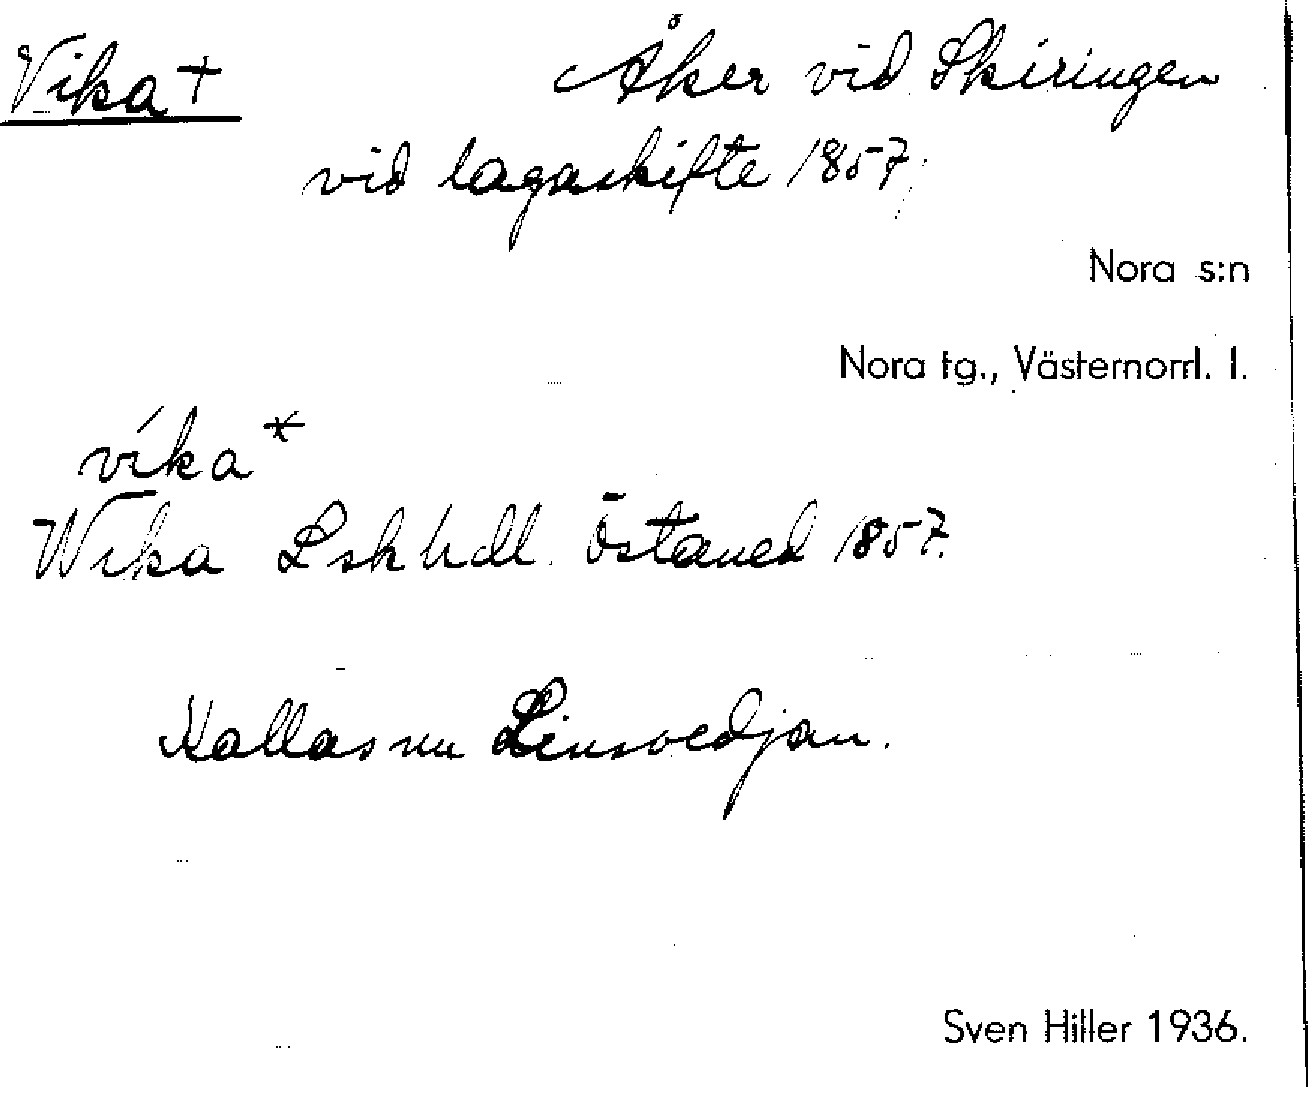 Vika +
Åker vid Skiringen
vid lagaskifte 1857.
Nora s:n
Nora tg., Västernorrl. l.
víka *
Wika Lskhdl. Östaned 1857.
Kallas nu Linsvedjan.
Sven Hiller 1936.